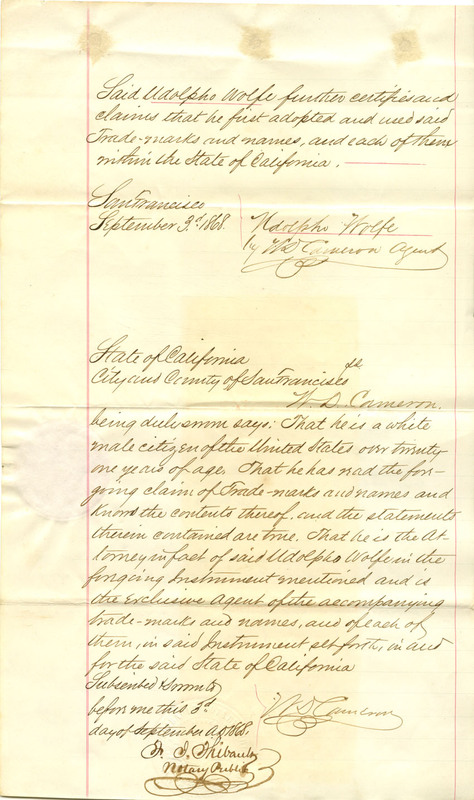 Said Udolpho Wolfe further certifies and
claims that he first adopted and used said
Trade-marks and names, and each of them
within the State of California.
San Francisco
September 3d. 1868.
Udolpho Wolfe
by W. D. Cameron Agent
State of California
City and County of San Francisco ss
W. D. Cameron,
being duly sworn says: That he is a white
male citizen of the United States over twenty
one years of age. That he has read the for-
going claim of Trade-marks and names and
know the contents thereof, and the statements
therein contained are true. That he is the At-
torney in fact of said Udolpho Wolfe in the
forgoing Instrument mentioned and is
the Exclusive Agent of the accompanying
trade-marks and names, and of each of
them, in said Instrument set forth, in and
for the said State of California
Subscribed & sworn to
before me this 3d
day of September AD 1868.
W D Cameron
F. J. Thibault
Notary Public